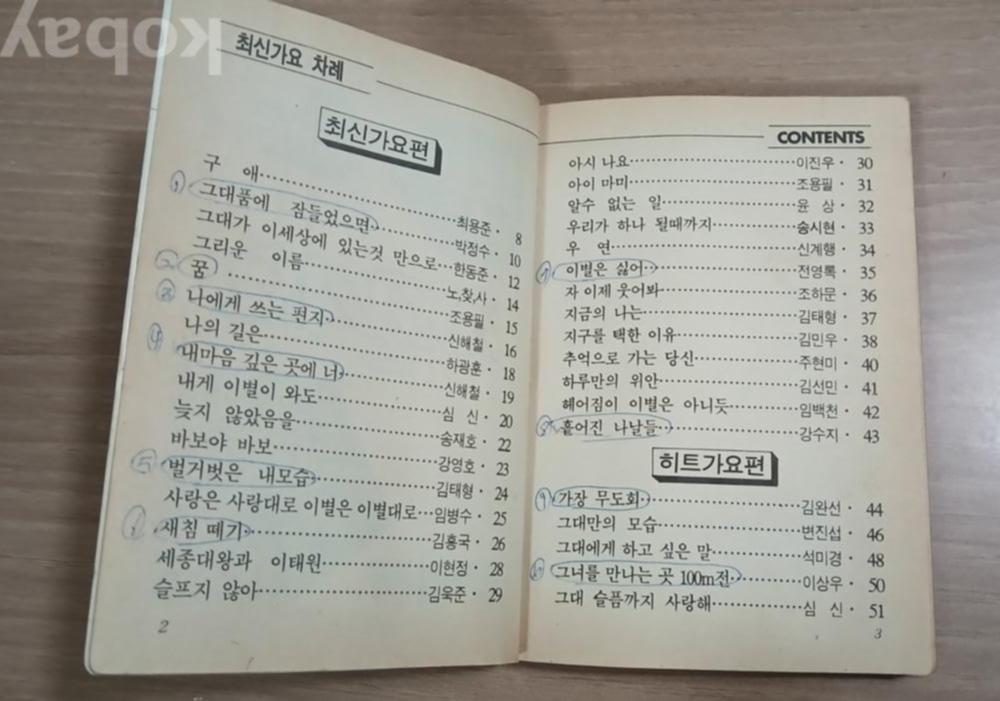 kobay
최신가요 차례
최신가요편
구 애 최용준 · 8
① 그대품에 잠들었으면 박정수 · 10
그대가 이세상에 있는것 만으로 한동준 · 12
그리운 이름 노,찾,사 · 14
② 꿈 조용필 · 15
③ 나에게 쓰는 편지 신해철 · 16
나의 길은 하광훈 · 18
④ 내마음 깊은 곳에 너 신해철 · 19
내게 이별이 와도 심 신 · 20
늦지 않았음을 송재호 · 22
바보야 바보 강영호 · 23
⑤ 벌거벗은 내모습 김태형 · 24
사랑은 사랑대로 이별은 이별대로 임병수 · 25
새침 떼기 김흥국 · 26
세종대왕과 이태원 이현정 · 28
슬프지 않아 김욱준 · 29
2
CONTENTS
아시 나요 이진우 · 30
아이 마미 조용필 · 31
알수 없는 일 윤 상 · 32
우리가 하나 될때까지 송시현 · 33
우 연 신계행 · 34
이별은 싫어 전영록 · 35
자 이제 웃어봐 조하문 · 36
지금의 나는 김태형 · 37
지구를 택한 이유 김민우 · 38
추억으로 가는 당신 주현미 · 40
하루만의 위안 김선민 · 41
헤어짐이 이별은 아니듯 임백천 · 42
흩어진 나날들 강수지 · 43
히트가요편
⑨ 가장 무도회 김완선 · 44
그대만의 모습 변진섭 · 46
그대에게 하고 싶은 말 석미경 · 48
그녀를 만나는 곳 100m전 이상우 · 50
그대 슬픔까지 사랑해 심 신 · 51
3